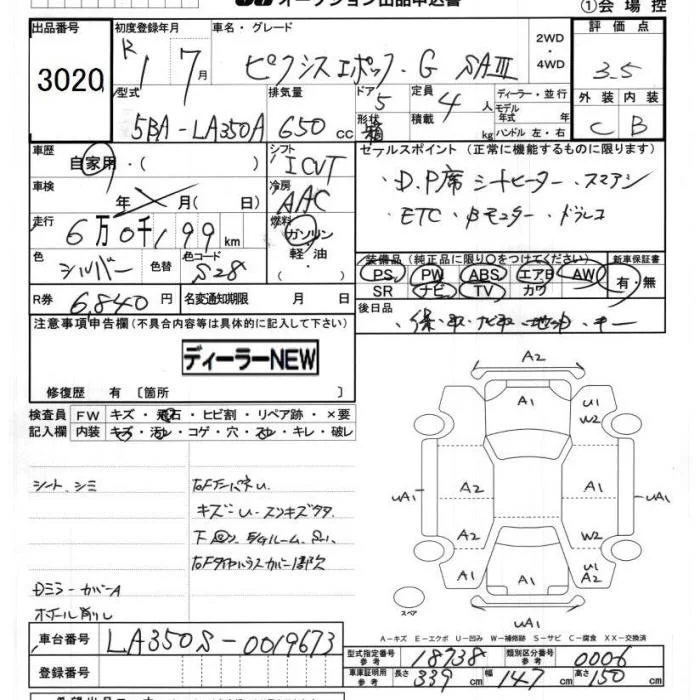 オークション出品申込書
①会場控
出品番号
3020
初度登録年月
R 1 7月
車名・グレード
ピクシスエポック・G SAⅢ
2WD
・
4WD
評価点
3.5
型式
5BA-LA350A
排気量
650 cc
ドア
5
形状
箱
定員
4人
積載
kg
ディーラー・並行
モデル
年式 年
ハンドル 左・右
外装 内装
C B
車歴
自家用・( )
シフト
ICVT
車検
年 月( 日)
冷房
AAC
走行
6万0千199km
燃料
ガソリン
軽油
・( )
色
シルバー
色替
色コード
S28
R券
6,840円
名変通知期限 月 日
セールスポイント (正常に機能するものに限ります)
・D.P席シートヒーター・スマアシ
・ETC・Bモニター・ドラレコ
装備品(純正品に限り○をつけてください)
PS PW ABS エアB AW
SR ナビ TV カワ
新車保証書
有・無
後日品
注意事項申告欄(不具合内容等は具体的に記入して下さい)
ディーラーNEW
修復歴 有 〔箇所 〕
検査員
記入欄
FW キズ・飛石・ヒビ割・リペア跡・×要
内装 キズ・汚れ・コゲ・穴・スレ・キレ・破レ
シート、シミ
Dミラーカバー A
ホイール削れ
A2
A1
U1
W2
A2
A1
UA1
UA1
A2
W2
A1
A1
U1
A2
スペア
UA1
A-キズ E-エクボ U-凹み W-補修跡 S-サビ C-腐食 XX-交換済
車台番号
LA350S-0019673
登録番号
型式指定番号
参考
18738
類別区分番号
参考
0006
車庫証明用
参考
長さ
339 cm
幅
147 cm
高さ
150 cm